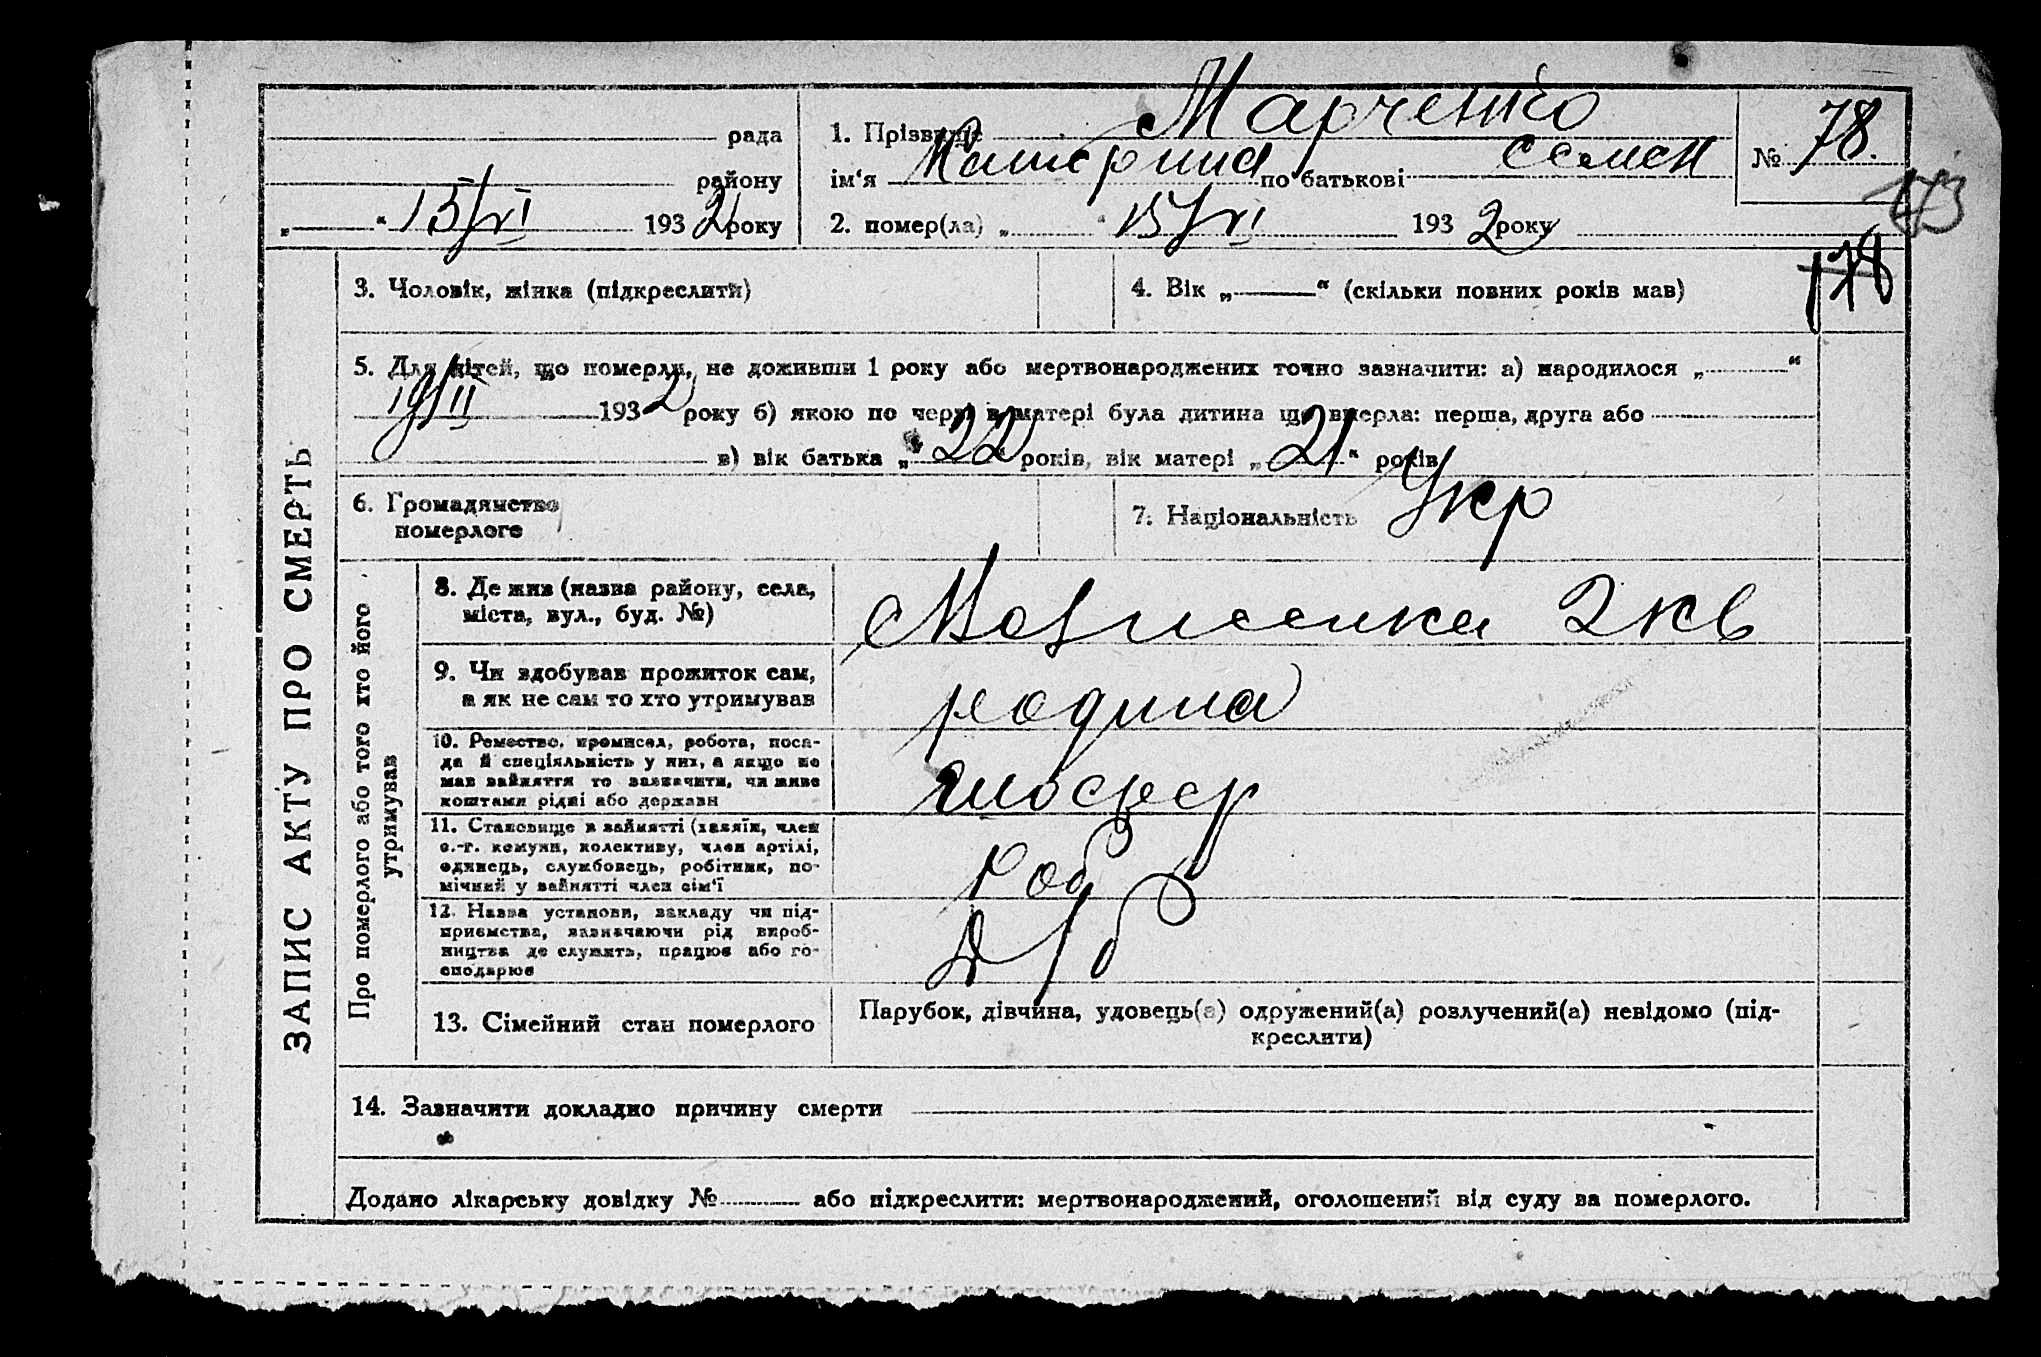 Марченко
рада
1. Прізвище
№ 78.
району
ім'я Катерина по батькові Семен
173
„ “ 15/VI 1932 року
2. помер(ла) „ “ 15/VI 1932 року
178
ЗАПИС АКТУ ПРО СМЕРТЬ
3. Чоловік, жінка (підкреслити)
4. Вік „ “ (скільки повних років мав)
5. Для дітей, що померли, не доживши 1 року або мертвонароджених точно зазначити: а) народилося „ “
19/II 1932 року б) якою по черзі в матері була дитина що вмерла: перша, друга або
в) вік батька „ 22 “ років, вік матері „ 21 “ років
6. Громадянство
померлого
7. Національність Укр
Про померлого або того хто його
утримував
8. Де жив (назва району, села,
міста, вул., буд. №)
2 кв
9. Чи здобував прожиток сам,
а як не сам то хто утримував
родина
10. Ремество, промисел, робота, поса-
да й спеціяльність у них, а якщо не
мав заняття то зазначити, чи живе
коштами рідні або держави
шофер
11. Становище в занятті (хазяїн, член
с.-г. комуни, колективу, член артілі,
одинець, службовець, робітник, по-
мічний у занятті член сім'ї
роб
12. Назва установи, закладу чи під-
приємства, зазначаючи рід вироб-
ництва де служить, працює або го-
сподарює
13. Сімейний стан померлого
Парубок, дівчина, удовець(а) одружений(а) розлучений(а) невідомо (під-
креслити)
14. Зазначити докладно причину смерти
Додано лікарську довідку № або підкреслити: мертвонароджений, оголошений від суду за померлого.